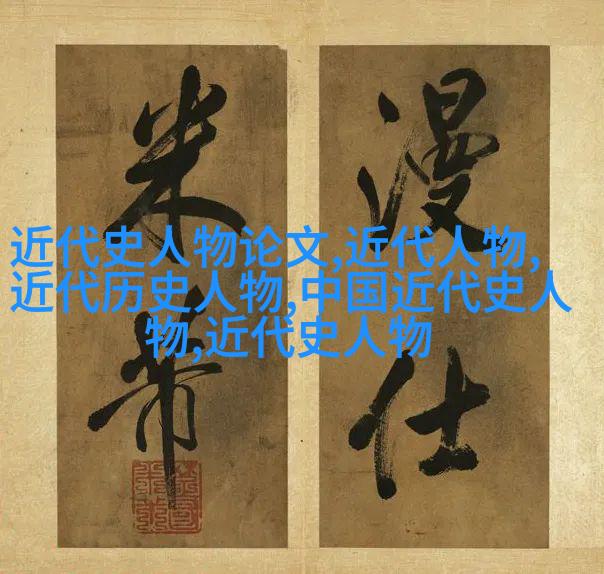 漫仕
米芾
近代史人物论文,近代人物,
近代历史人物,中国近代史人
物,近代史人物